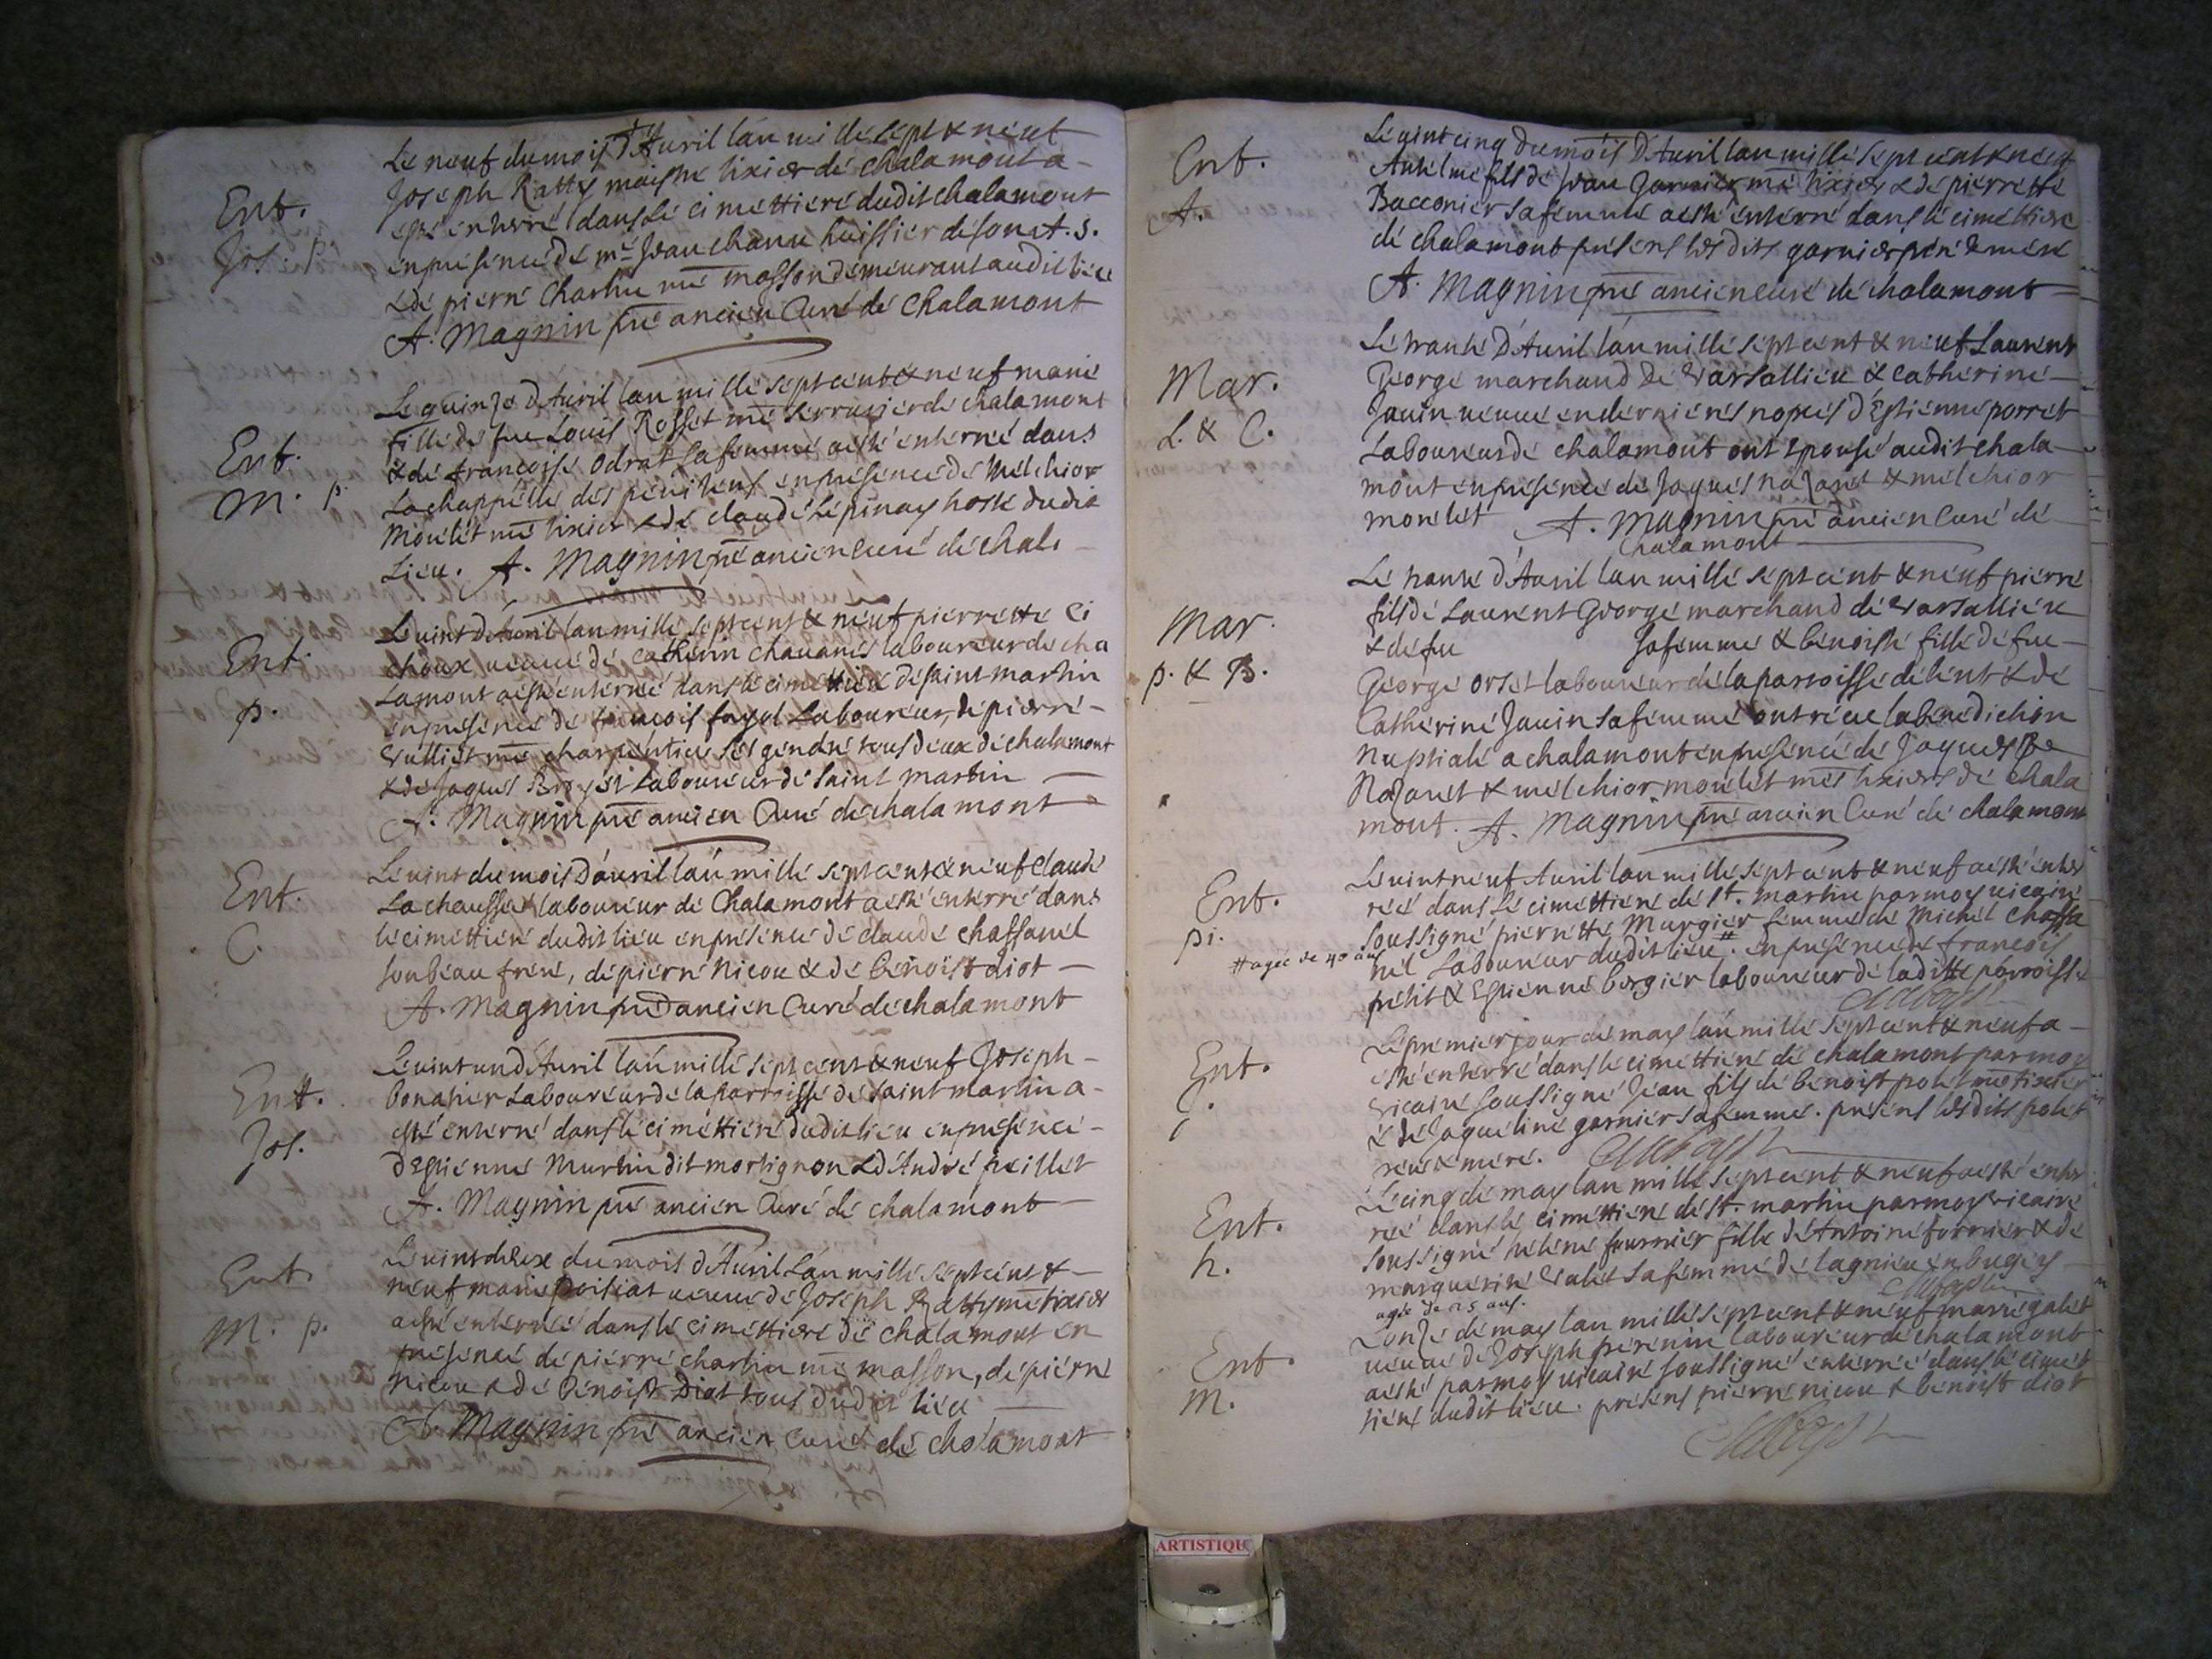 Le neuf du mois d'Avril l'an mille sept & neuf
Ent.
Jos. P.
Joseph Ratty maistre tixier de chalamont a
esté enterré dans le cimettiere dudit chalamont
en presence de me Jean chanu huissier de son A. S.
& de pierre Charlin me masson demeurant audit lieu
A. Magnin pre ancien Curé de Chalamont
Le quinze d'Avril l'an mille sept cent & neuf marie
fille de feu Louis Rosset me serrurier de chalamont
Ent.
M. p.
& de francoise Odrat sa femme a esté enterrée dans
La chappelle des penitens en presence de Melchior
Moulet me tixier & de claude Lepinay hoste dudit
Lieu. A. Magnin pre ancien Curé de chala
Le vint d'Avril l'an mille sept cent & neuf pierrette Ci
Ent.
p.
choux veuve de Catherin Chavanes laboureur de cha
lamont a esté enterrée dans le cimettiere de saint martin
en presence de francois fayol Laboureur, de pierre
Vulliet me charpentier ses gendre tous deux de chalamont
& de Jaques Broyet Laboureur de Saint Martin
A. Magnin pre ancien Curé de chalamont
Le vint du mois d'avril l'an mille sept cent & neuf Claude
Ent.
C.
La chausse laboureur de Chalamont a esté enterré dans
le cimettiere dudit lieu en presence de claude chaffanel
son beau frere, de pierre Nicou & de benoist diot
A. Magnin pre ancien Curé de chalamont
Le vint un d'Avril l'an mille sept cent & neuf Joseph
Ent.
Jos.
bonatier Laboureur de la parroisse de saint martin a
esté enterré dans le cimettiere dudit lieu en presence
d'Estienne Martin dit mortignon & d'André peillet
A. Magnin pre ancien Curé de chalamont
Le vint deux du mois d'Avril L'an mille sept cent &
Ent.
M. p.
neuf marie poitiat veuve de Joseph Ratty me tixier
a esté enterrée dans le cimettiere de chalamont en
presence de pierre charlin me masson, de pierre
Nicou & de Benoist Diot tous dudit lieu
A. Magnin pre ancien Curé de chalamont
Le vint cinq du mois D'Avril l'an mille sept cent & neuf
Ent.
A.
Antelme fils de Jean Garnier me tixier & de pierrette
Bacconier sa femme a esté enterré dans le cimettiere
de chalamont presens lesdits garnier pere & mere
A. Magnin pre ancien curé de chalamont
Le trante D'Avril l'an mille sept cent & neuf Laurent
Mar.
L. & C.
George marchand de Varsallieu & Catherine
Janin veuve en dernieres nopces d'Estienne porret
Laboureur de chalamont ont epousé audit chala
mont en presence de Jaques nazaret & melchior
moulet A. Magnin pre ancien Curé de
Chalamont
Le trante d'Avril l'an mille sept cent & neuf pierre
Mar.
p. & B.
fils de Laurent George marchand de Varsallieu
& de feu sa femme & benoiste fille de feu
George orset laboureur de la parroisse de lent & de
Catherine Janin sa femme ont receu la benediction
Nuptiale a chalamont en presence de Jaques
Nazaret & melchior moulet mes tixiers de Chala
mont. A. Magnin pre ancien Curé de chalamont
Le vint neuf Avril l'an mille sept cent & neuf a esté enter
Ent.
pi.
rée dans le cimettiere de St. martin par moy vicaire
soussigné pierrette Murgier femme de Michel Chaffa
# agée de 40 ans
nel Laboureur dudit lieu #. en presence de francois
petit & Estienne bergier laboureur de laditte parroisse
Le premier jour de may l'an mille sept cent & neuf a
Ent.
J.
esté enterré dans le cimettiere de chalamont par moy
vicaire soussigné Jean fils de benoist polet me tixier
& de Jaqueline garnier sa femme. presens lesdits polet
pere & mere.
Le cinq de may l'an mille sept cent & neuf a esté enter
Ent.
h.
rée dans le cimettiere de St. martin par moy vicaire
soussigné helene fournier fille de Antoine fornier & de
marguerite Valet sa femme de lagnieu en bugey
L'onze de may l'an mille sept cent & neuf marie galet
Ent.
M.
veuve de Joseph perenin laboureur de chalamont
a esté par moy vicaire soussigné enterrée dans le cimet
tiere dudit lieu. presens pierre nicou & benoist diot
ARTISTIQU